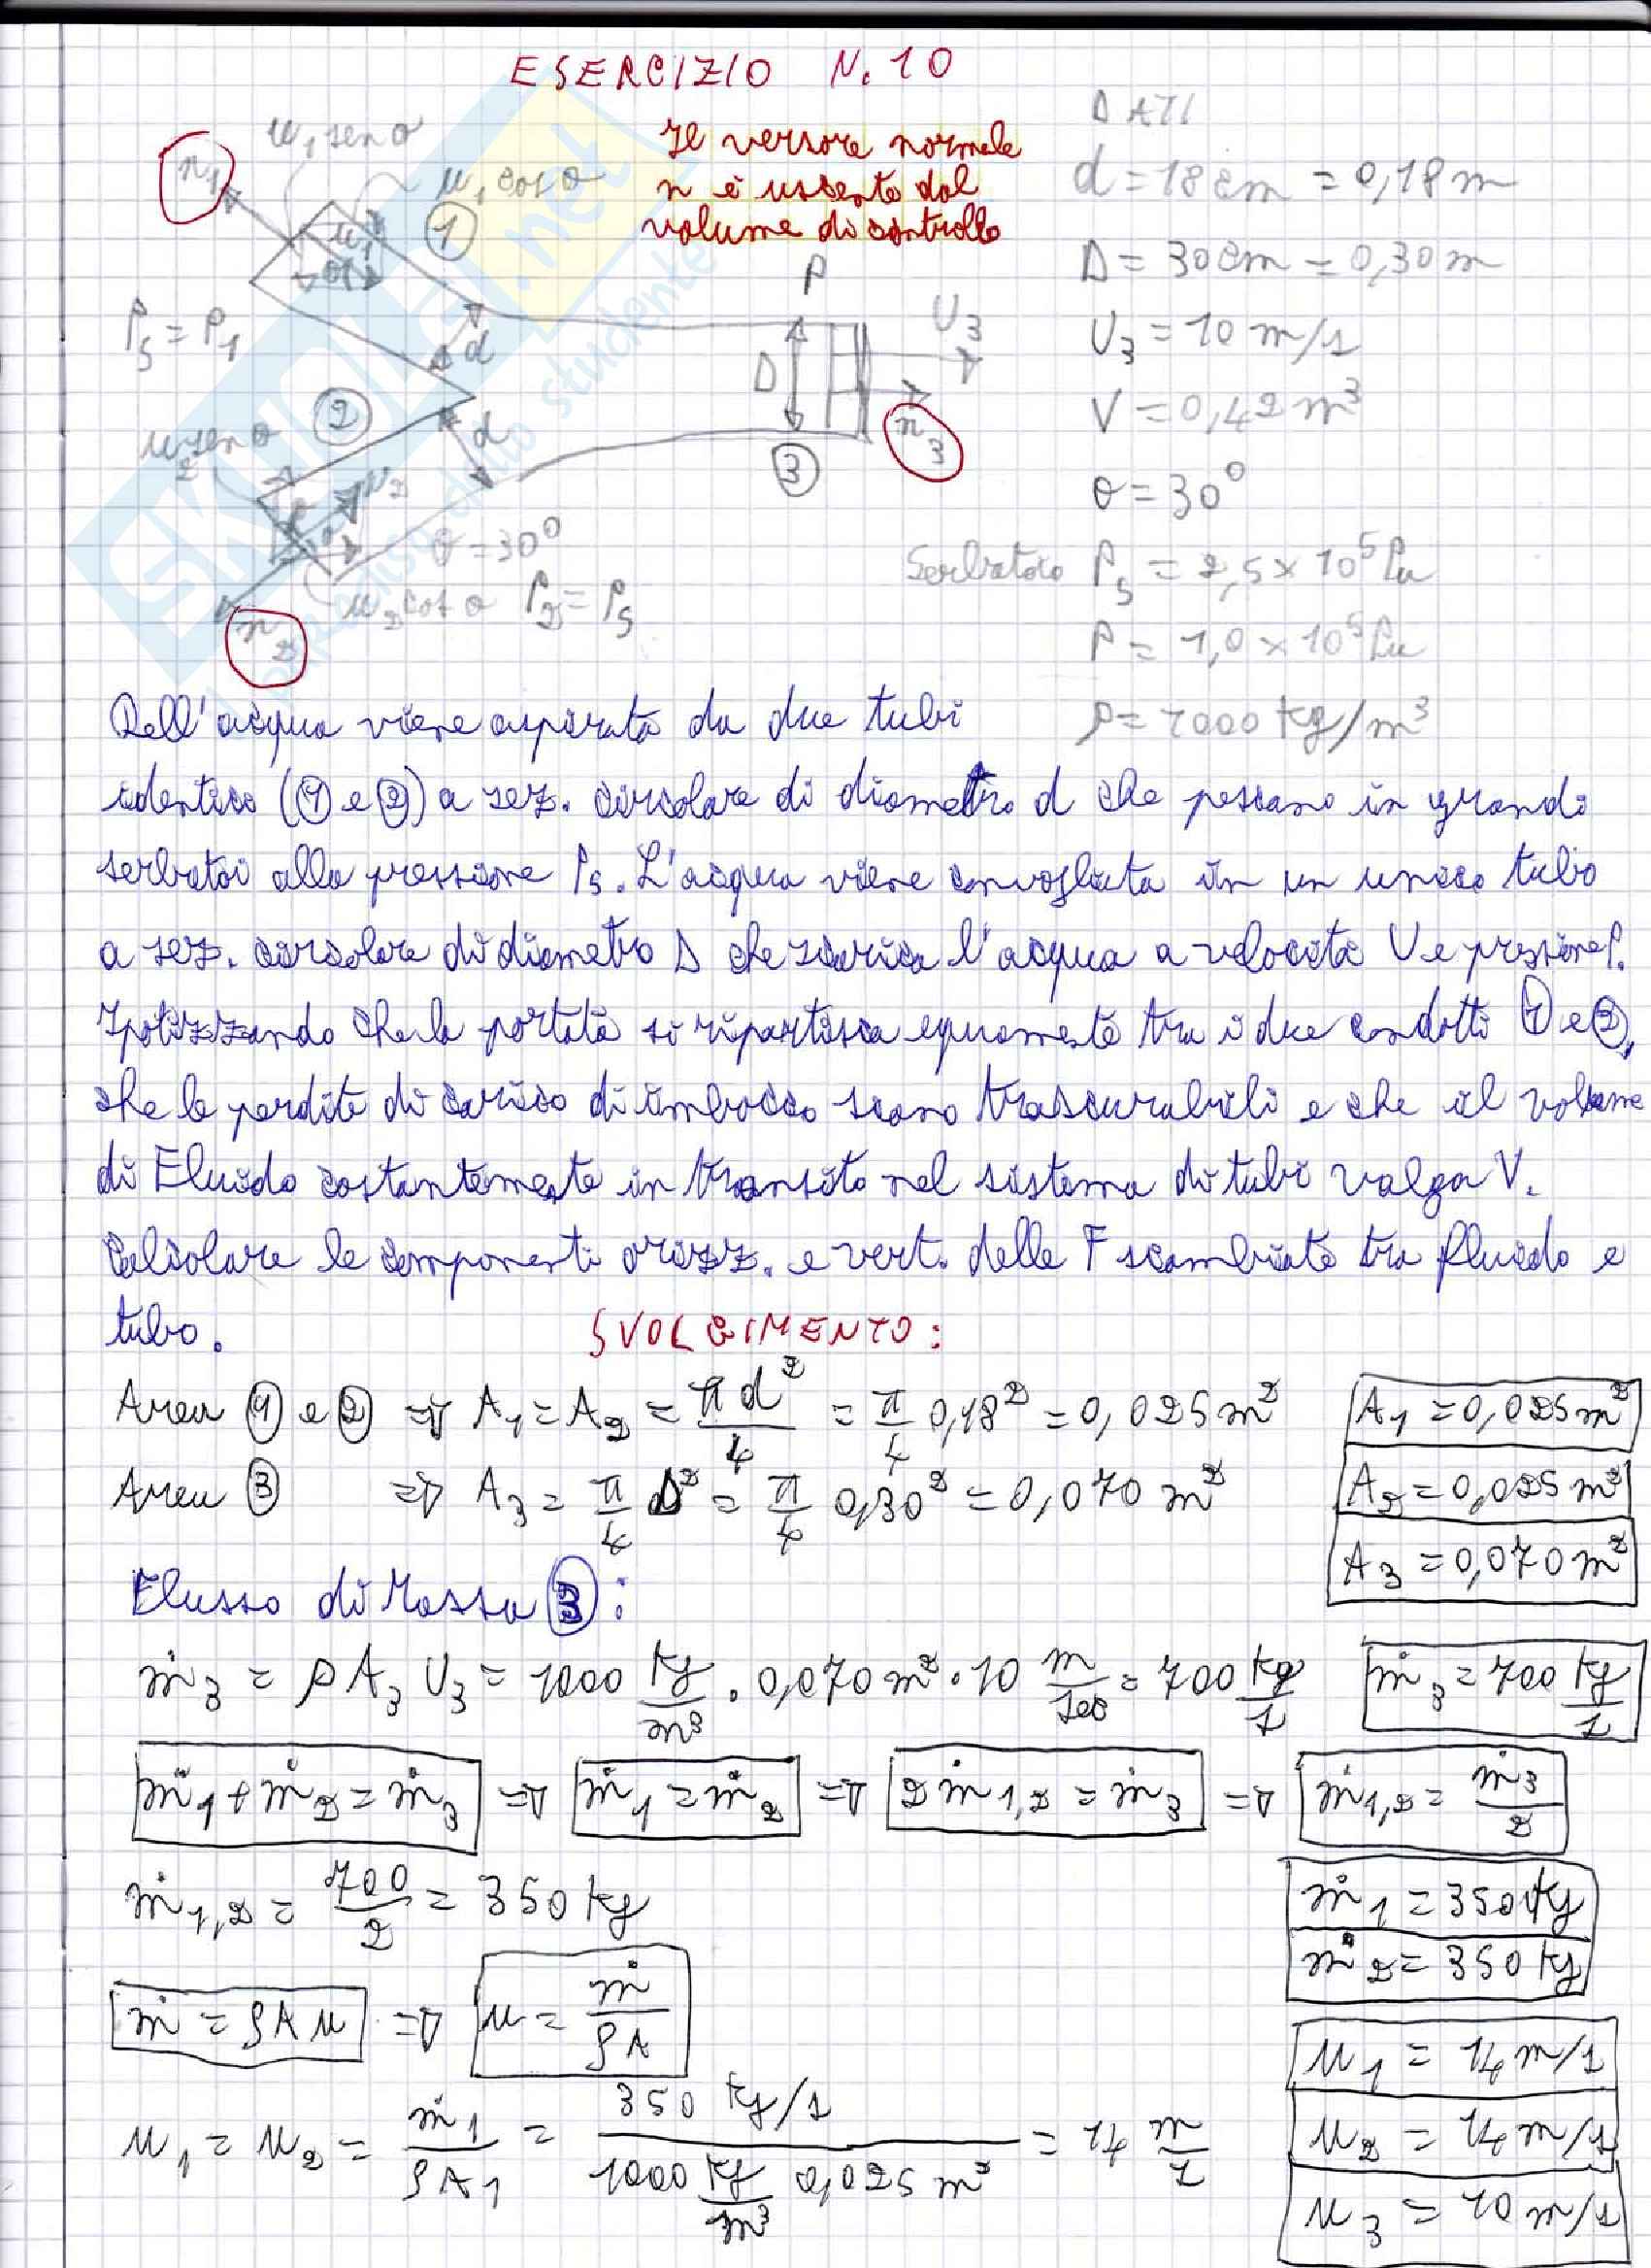 ESERCIZIO N. 10
Il versore normale
n è uscente dal
volume di controllo
DATI
d = 18 cm = 0,18 m
D = 30 cm = 0,30 m
U3 = 10 m/s
V = 0,42 m³
θ = 30°
Serbatoio Ps = 2,5 × 10⁵ Pa
P = 1,0 × 10⁵ Pa
ρ = 1000 kg/m³
n1
u1 sen θ
u1 cos θ
u1
θ
1
Ps = P1
d
P
D
U3
n3
3
2
d
u2 sen θ
u2
θ = 30°
u2 cos θ P2 = Ps
n2
SKUOLA.net
Dell'acqua viene aspirata da due tubi
identici (1 e 2) a sez. circolare di diametro d che pescano in grandi
serbatoi alla pressione Ps. L'acqua viene convogliata in un unico tubo
a sez. circolare di diametro D che scarica l'acqua a velocità U e pressione P.
Ipotizzando che la portata si ripartisca equamente tra i due condotti 1 e 2,
che le perdite di carico di imbocco siano trascurabili e che il volume
di Fluido costantemente in transito nel sistema di tubi valga V.
Calcolare le componenti orizz. e vert. delle F scambiate tra fluido e
tubo.
SVOLGIMENTO:
Area 1 e 2 ⇒ A1 = A2 = πd²/4 = π/4 0,18² = 0,025 m² A1 = 0,025 m²
A2 = 0,025 m²
Area 3 ⇒ A3 = π/4 D² = π/4 0,30² = 0,070 m²
A3 = 0,070 m²
Flusso di Massa 3:
ṁ3 = ρ A3 U3 = 1000 kg/m³ · 0,070 m² · 10 m/sec = 700 kg/s ṁ3 = 700 kg/s
ṁ1 + ṁ2 = ṁ3 ⇒ ṁ1 = ṁ2 ⇒ 2 ṁ1,2 = ṁ3 ⇒ ṁ1,2 = ṁ3/2
ṁ1,2 = 700/2 = 350 kg ṁ1 = 350 kg
ṁ2 = 350 kg
ṁ = ρ A u ⇒ u = ṁ/ρA
u1 = 14 m/s
u1 = u2 = ṁ1/ρA1 = 350 kg/s / 1000 kg/m³ 0,025 m² = 14 m/s u2 = 14 m/s
u3 = 10 m/s